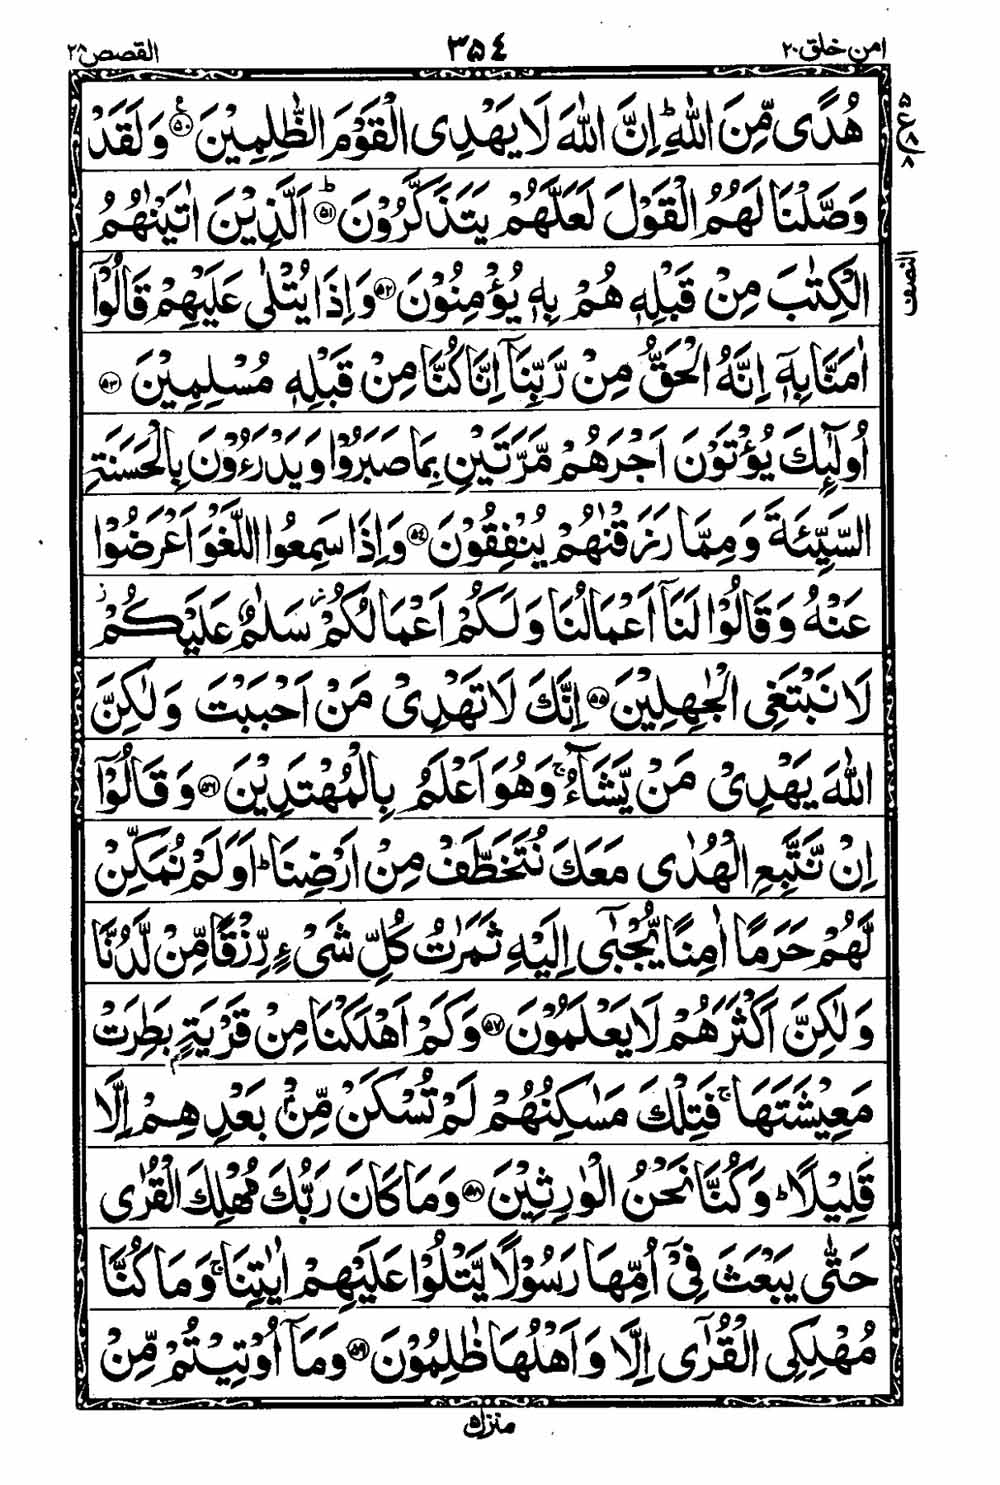 امن خلق ۲۰ ۳۵٤ القصص ۲۸
هُدًى مِّنَ اللّٰهِ ؕ اِنَّ اللّٰهَ لَا يَهْدِى الْقَوْمَ الظّٰلِمِيْنَ ۵۰ ع وَلَقَدْ
وَصَّلْنَا لَهُمُ الْقَوْلَ لَعَلَّهُمْ يَتَذَكَّرُوْنَ ۵۱ ؕ اَلَّذِيْنَ اٰتَيْنٰهُمُ
الْكِتٰبَ مِنْ قَبْلِهٖ هُمْ بِهٖ يُؤْمِنُوْنَ ۵۲ وَاِذَا يُتْلٰى عَلَيْهِمْ قَالُوْۤا
اٰمَنَّا بِهٖۤ اِنَّهُ الْحَقُّ مِنْ رَّبِّنَاۤ اِنَّا كُنَّا مِنْ قَبْلِهٖ مُسْلِمِيْنَ ۵۳
اُولٰٓئِكَ يُؤْتَوْنَ اَجْرَهُمْ مَّرَّتَيْنِ بِمَا صَبَرُوْا وَيَدْرَءُوْنَ بِالْحَسَنَةِ
السَّيِّئَةَ وَمِمَّا رَزَقْنٰهُمْ يُنْفِقُوْنَ ۵٤ وَاِذَا سَمِعُوا اللَّغْوَ اَعْرَضُوْا
عَنْهُ وَقَالُوْا لَنَاۤ اَعْمَالُنَا وَلَكُمْ اَعْمَالُكُمْ ز سَلٰمٌ عَلَيْكُمْ ز
لَا نَبْتَغِى الْجٰهِلِيْنَ ۵۵ اِنَّكَ لَا تَهْدِىْ مَنْ اَحْبَبْتَ وَلٰكِنَّ
اللّٰهَ يَهْدِىْ مَنْ يَّشَآءُ ۚ وَهُوَ اَعْلَمُ بِالْمُهْتَدِيْنَ ۵۶ وَقَالُوْۤا
اِنْ نَّتَّبِعِ الْهُدٰى مَعَكَ نُتَخَطَّفْ مِنْ اَرْضِنَا ؕ اَوَلَمْ نُمَكِّنْ
لَّهُمْ حَرَمًا اٰمِنًا يُّجْبٰٓى اِلَيْهِ ثَمَرٰتُ كُلِّ شَىْءٍ رِّزْقًا مِّنْ لَّدُنَّا
وَلٰكِنَّ اَكْثَرَهُمْ لَا يَعْلَمُوْنَ ۵۷ وَكَمْ اَهْلَكْنَا مِنْ قَرْيَةٍۭ بَطِرَتْ
مَعِيْشَتَهَا ۚ فَتِلْكَ مَسٰكِنُهُمْ لَمْ تُسْكَنْ مِّنْۢ بَعْدِهِمْ اِلَّا
قَلِيْلًا ؕ وَكُنَّا نَحْنُ الْوٰرِثِيْنَ ۵۸ وَمَا كَانَ رَبُّكَ مُهْلِكَ الْقُرٰى
حَتّٰى يَبْعَثَ فِىْۤ اُمِّهَا رَسُوْلًا يَّتْلُوْا عَلَيْهِمْ اٰيٰتِنَا ۚ وَمَا كُنَّا
مُهْلِكِى الْقُرٰٓى اِلَّا وَاَهْلُهَا ظٰلِمُوْنَ ۵۹ وَمَاۤ اُوْتِيْتُمْ مِّنْ
۵ ع ۸ ۸
النصف
منزل ۵